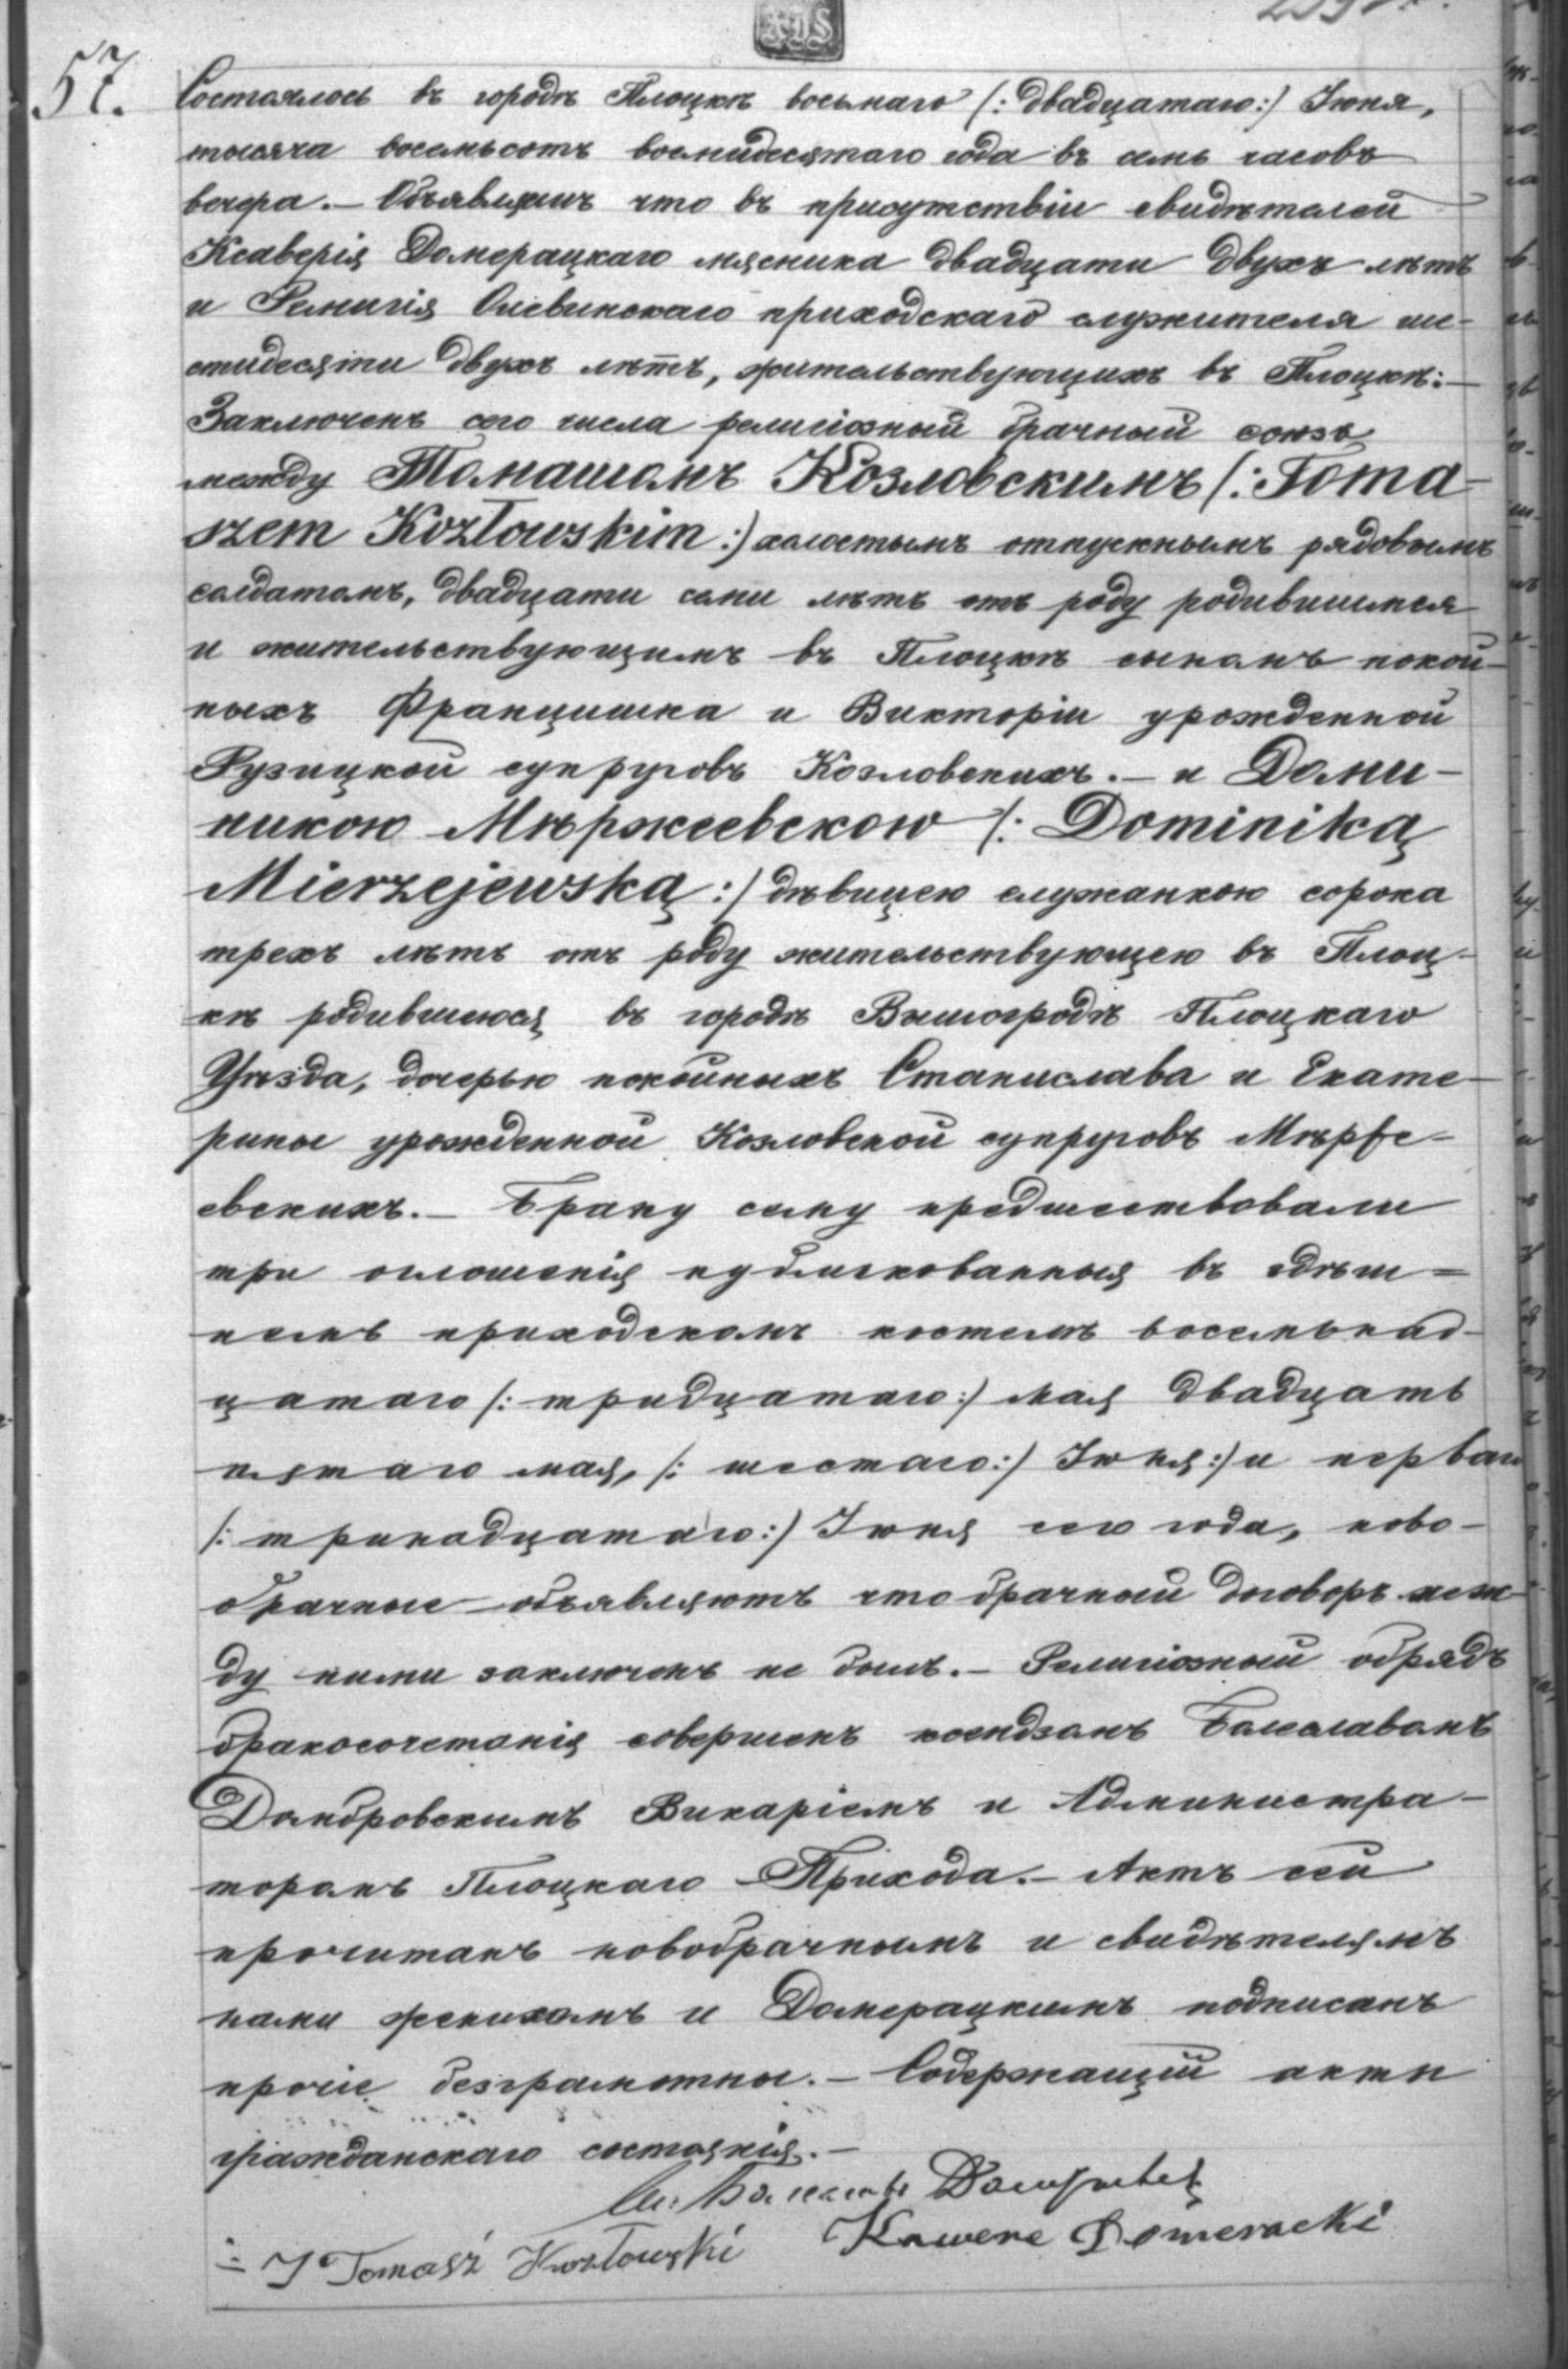 57.
Состоялось въ городѣ Плоцкѣ восьмаго (: двадцатаго :) Іюня,
тысяча восемьсотъ восмидесятаго года въ семь часовъ
вечера. — Объявляемъ что въ присутствіи свидѣтелей
Ксаверія Домерацкаго мясника двадцати двухъ лѣтъ
и Ремигія Олевинскаго приходскаго служителя ше-
стидесяти двухъ лѣтъ, жительствующихъ въ Плоцкѣ: —
Заключенъ сего числа религіозный брачный союзъ
между Томашомъ Козловскимъ (: Toma-
szem Kozłowskim :) холостымъ отпускнымъ рядовымъ
солдатомъ, двадцати семи лѣтъ отъ роду родившимся
и жительствующимъ въ Плоцкѣ сыномъ покой-
ныхъ Францишка и Викторіи урожденной
Рузицкой супруговъ Козловскихъ. — и Доми-
никою Мѣржеевскою (: Dominiką
Mierzejewską :) дѣвицею служанкою сорока
трехъ лѣтъ отъ роду жительствующею въ Плоц-
кѣ родившеюся въ городѣ Вышогродѣ Плоцкаго
Уѣзда, дочерью покойныхъ Станислава и Екате-
рины урожденной Козловской супруговъ Мѣрже-
евскихъ. — Браку сему предшествовали
три оглошенія публикованныя въ здѣш=
немъ приходскомъ костелѣ восемьнад-
цатаго (: тридцатаго :) Мая двадцать
пятаго мая, (: шестаго :) Іюня :) и перваго
(: тринадцатаго :) Іюня сего года, ново-
брачные объявляютъ что брачный договоръ меж-
ду ними заключенъ не былъ. — Религіозный обрядъ
бракосочетанія совершенъ ксендзомъ Болеславомъ
Домбровскимъ Викаріемъ и Администра-
торомъ Плоцкаго Прихода. — Актъ сей
прочитанъ новобрачнымъ и свидѣтелямъ
нами женихомъ и Домерацкимъ подписанъ
прочіе безграмотны. — Содержащій акты
гражданскаго состоянія. —
Tomasz Kozłowski Xawere Domeracki